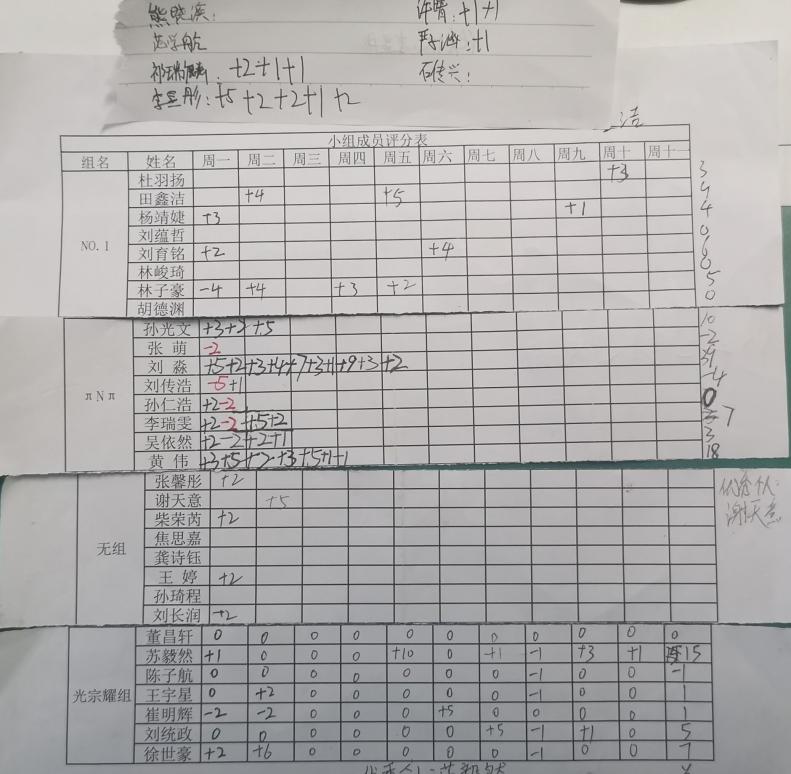 熊晓溪: 许晴: +1 +1
范学航 +1
祁瑞麟: +2+1+1 石传兴:
李昱彤: +5 +2 +2+1 +2
小组成员评分表
组名 姓名 周一 周二 周三 周四 周五 周六 周七 周八 周九 周十 周十一
杜羽扬 +3 3
田鑫洁 +4 +5 9
杨靖婕 +3 +1 4
NO.1 刘蕴哲 0
刘育铭 +2 +4 6
林峻琦 0
林子豪 -4 +4 +3 +2 5
胡德渊 0
孙光文 +3+2+5 10
张萌 -2 -2
刘淼 +5+2+3+4+7+3+1+9+3+2 39
刘传浩 -5+1 -4
πNπ 孙仁浩 +2-2 0
李瑞雯 +2-2+5+2 7
吴依然 +2-2+2+1 3
黄伟 +3+5+2+3+5+1-1 18
张馨彤 +2
谢天意 +5 谢天意
柴荣芮 +2
焦思嘉
无组 龚诗钰
王婷 +2
孙琦程
刘长润 +2
董昌轩 0 0 0 0 0 0 0 0 0 0 0
苏毅然 +1 0 0 0 +10 0 +1 -1 +3 +1 15
陈子航 0 0 0 0 0 0 0 -1 0 0 -1
光宗耀组 王宇星 0 +2 0 0 0 0 0 -1 0 0 1
崔明辉 -2 -2 0 0 0 +5 0 0 0 0 1
刘统政 0 0 0 0 0 0 +5 -1 +1 0 5
徐世豪 +2 +6 0 0 0 0 0 -1 0 0 7